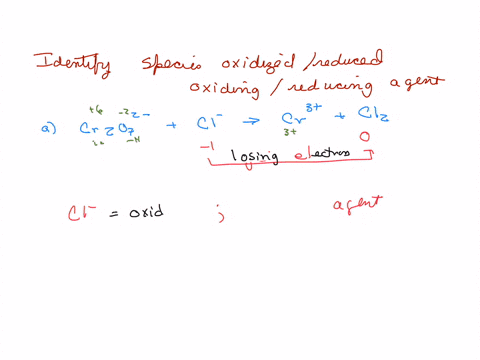 Identify species oxidized/reduced
oxiding/reducing agent
+6 -2
a) Cr₂O₇²⁻ + Cl⁻ → Cr³⁺ + Cl₂
-14 3+
-1 0
losing electros
Cl⁻ = oxid ; agent